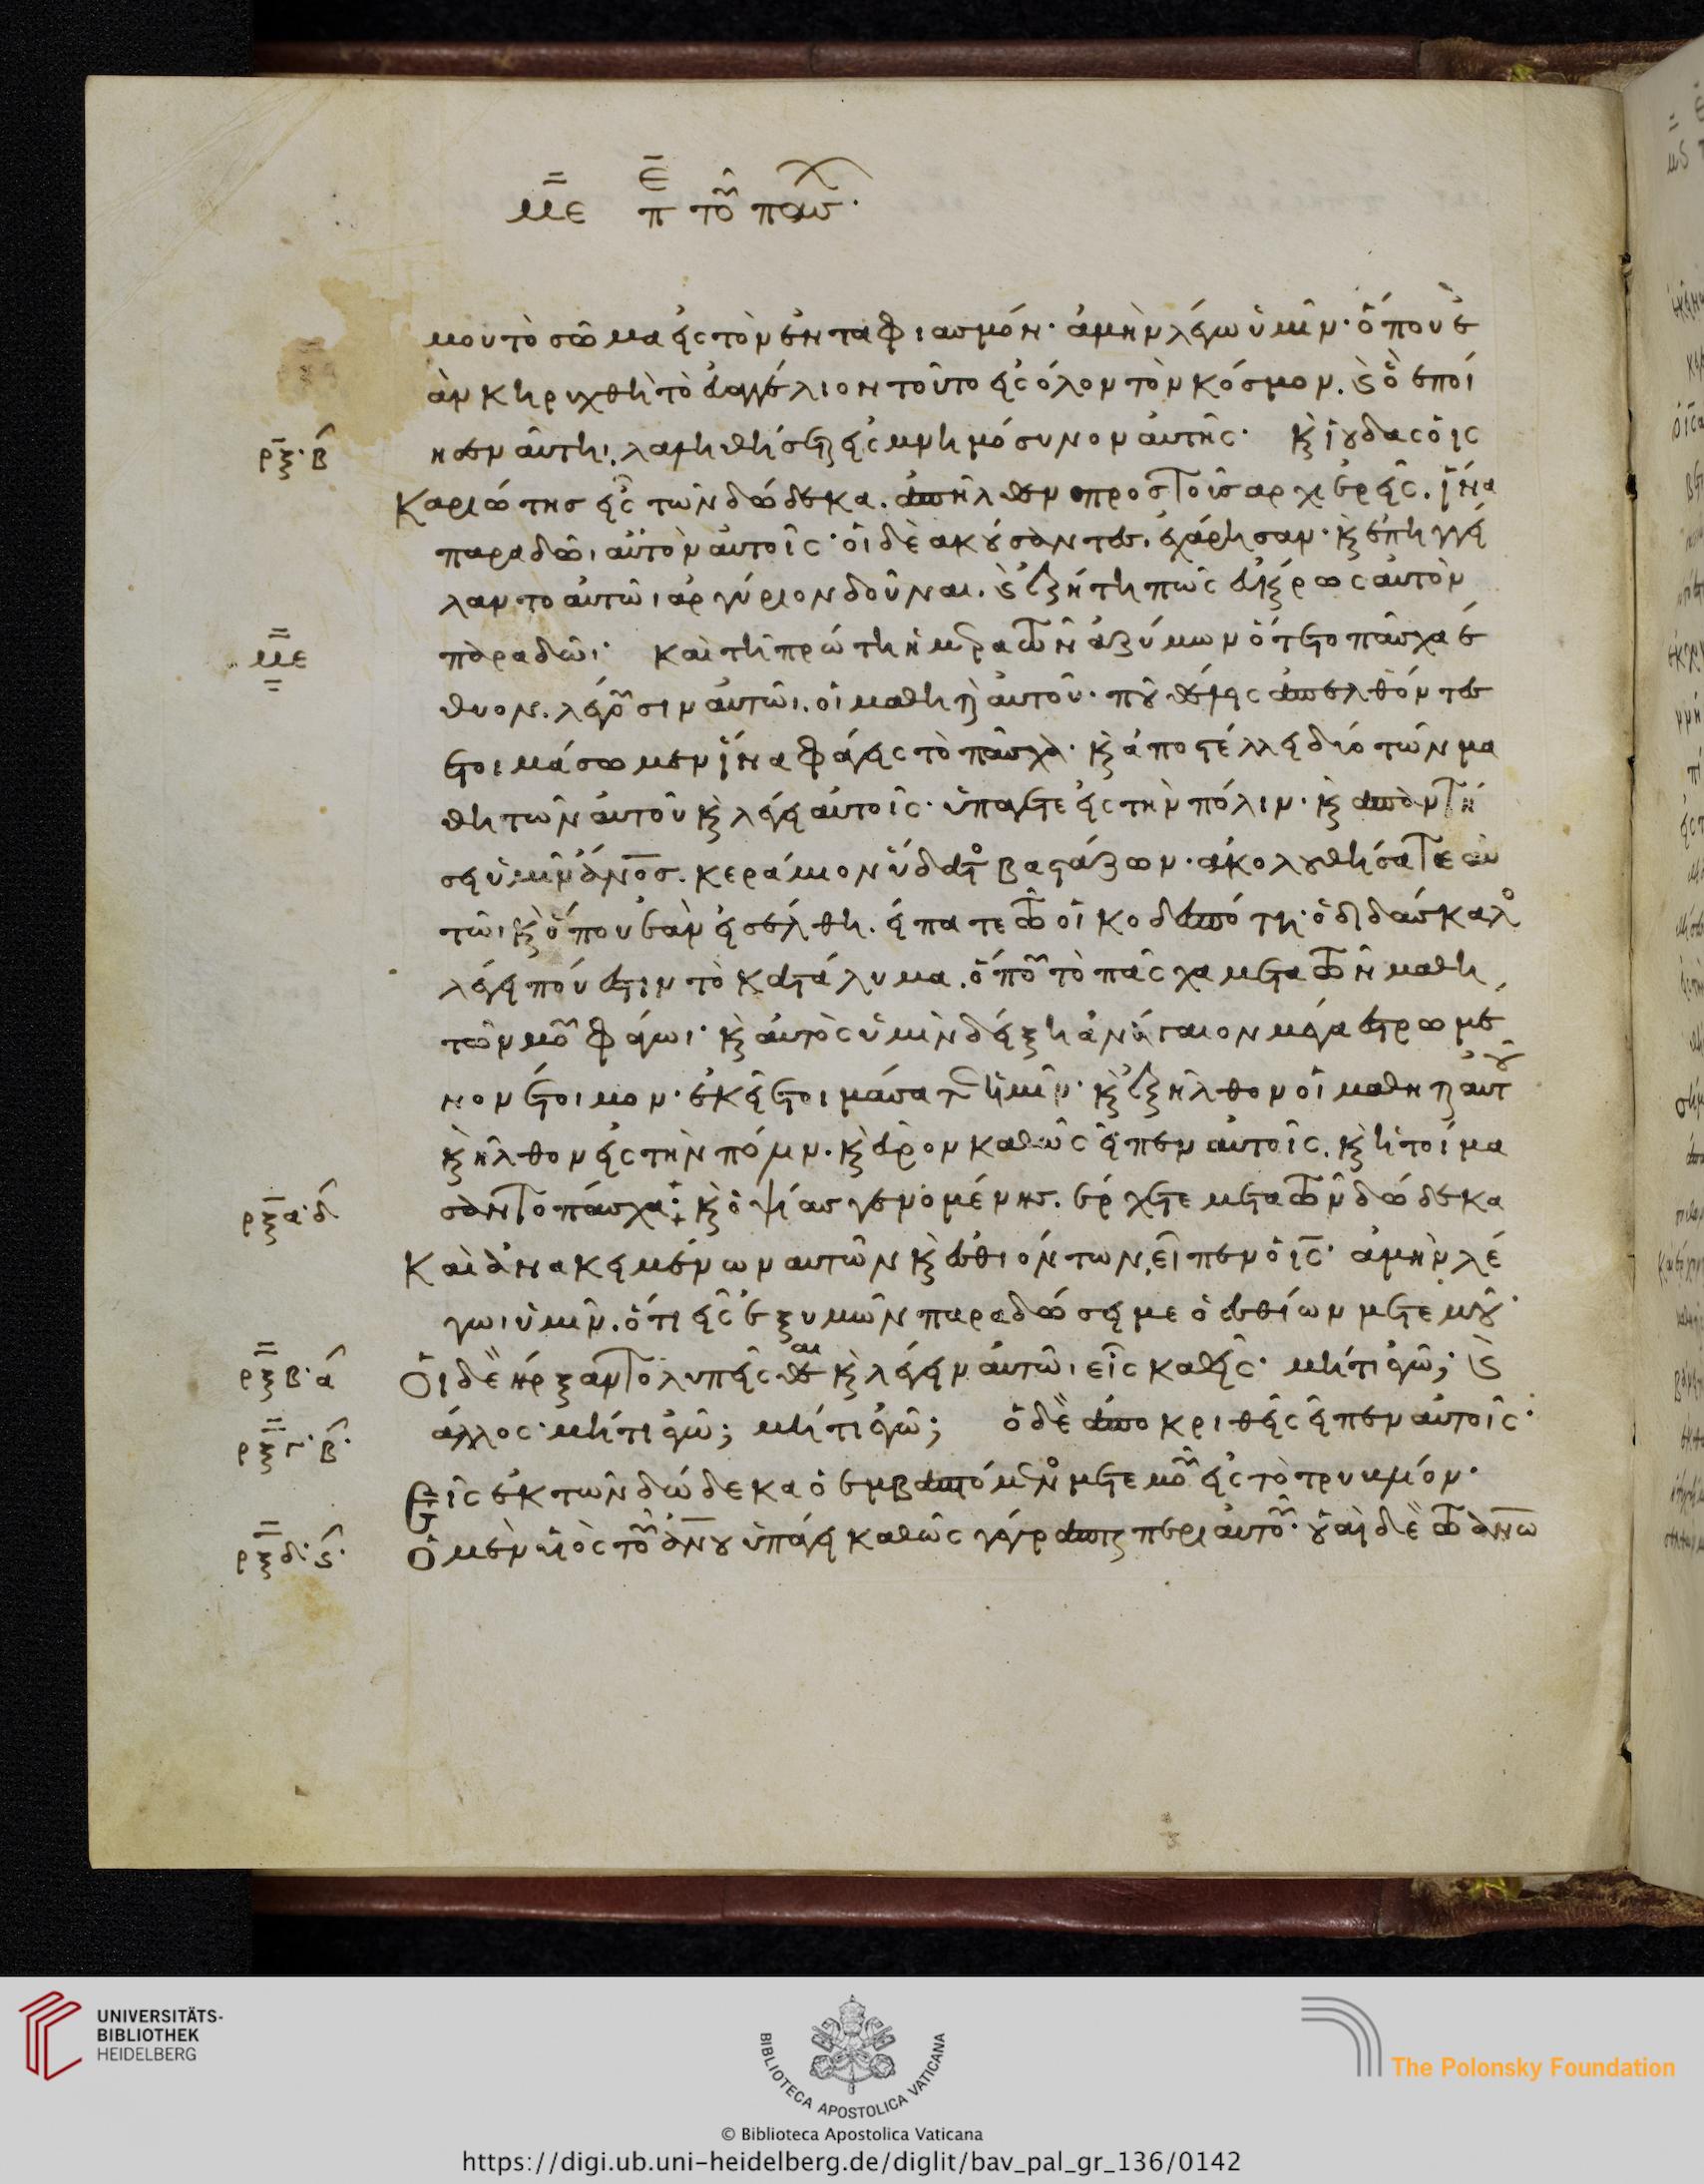 με πε τοῦ πάσχ
μου τὸ σῶμα εἰς τὸν ἐνταφιασμόν· ἀμὴν λέγω ὑμῖν· ὅπου ἐ
ὰν κηρυχθῆ τὸ εὐαγγέλιον τοῦτο εἰς ὅλον τὸν κόσμον. κ ὃ ἐποί
ρξ· β
ησεν αὕτη, λαληθήσεται εἰς μνημόσυνον αὐτῆς· κ ἰούδας ὁ ἰσ
καριώτησ εἷς τῶν δώδεκα. ἀπῆλθεν προσ τοὺσ αρχιερεῖς. ἵνα
παραδῶι αὐτὸν αὐτοῖς· οἱ δὲ ακούσαντεσ. ἐχάρησαν· κ ἐπηγγεί
λαντο αὐτῶι αργύριον δοῦναι. κ ἐζήτη πῶς εὐκέρως αὐτὸν
με
παραδῶι· καὶ τῆ πρώτη ἡμέρα τῶν ἀζύμων ὅτε το πάσχα ἔ
θυον. λέγουσιν αὐτῶι. οἱ μαθηταὶ αὐτοῦ· ποῦ θέλεις ἀπελθόντεσ
ἑτοιμάσωμεν ἵνα φάγεις τὸ πάσχα· κ ἀποστέλλει δύο τῶν μα
θητῶν αὐτοῦ κ λέγει αὐτοῖς· ὑπάγετε εἰς τὴν πόλιν· κ ἀπαντή
σει ὑμῖν ἀνοσ. κεράμιον ὕδατος βαστάζων· ακολουθήσατε αὐ
τῶι κ ὅπου ἐὰν εἰσέλθη. εἴπατε τῶ οἰκοδεσπότη· ὁ διδάσκαλος
λέγει ποῦ ἐστιν τὸ κατάλυμα. ὅπου τὸ πάσχα μετα τῶν μαθη
τῶν μου φάγωι· κ αὐτὸς ὑμῖν δείξη ἀνώγαιον μέγα ἐστρωμέ
νον ἕτοιμον· ἐκεῖ ἑτοιμάσατε ἡμῖν· κ ἐξῆλθον οἱ μαθηταὶ αὐτοῦ
κ ῆλθον εἰς τὴν πόλιν. κ εὗρον καθὼς εἶπεν αὐτοῖς. κ ἡτοίμα
ρξα· δ
σαν το πάσχα· κ ὀψίασ γενομένησ. ἔρχεται μετα τῶν δώδεκα
Καὶ ἀνακειμένων αυτῶν κ ἐσθιόντων, εἶπεν ὁ ις· ἀμὴν λέ
γωι ὑμῖν. ὅτι εἷς ἐξ υμῶν παραδώσει με ὁ ἐσθίων μετ ἐμοῦ·
ρξβ· α
Οἱ δὲ ἤρξαντο λυπεῖσθαι κ λέγειν αὐτῶι εἷς καθεῖς· μήτι ἐγῶ; κ
ρξγ· β·
ἄλλος· μήτι ἐγῶ; μήτι ἐγῶ; ὁ δὲ ἀποκριθεὶς εἶπεν αὐτοῖς·
Εἷς ἐκ τῶν δώδεκα ὁ ἐμβαπτόμενος μετ ἐμοῦ εἰς τὸ τρυβλίον·
ρξδ· ϛ·
Ὁ μὲν υἱὸς τοῦ ἀνου ὑπάγει καθὼς γέγραπται περι αὐτοῦ· οὐαὶ δὲ τῶ ἀνω
UNIVERSITÄTS-
BIBLIOTHEK
HEIDELBERG
BIBLIOTECA APOSTOLICA VATICANA
The Polonsky Foundation
© Biblioteca Apostolica Vaticana
https://digi.ub.uni-heidelberg.de/diglit/bav_pal_gr_136/0142